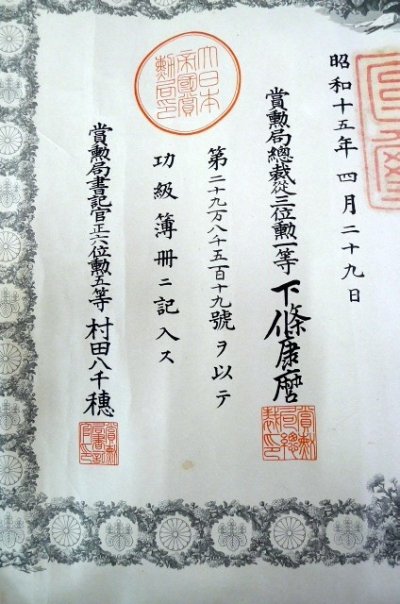 昭和十五年四月二十九日
賞勲局總裁從三位勲一等下條康麿
第二十九万八千五百十九號ヲ以テ
功級簿冊ニ記入ス
賞勲局書記官正六位勲五等村田八千穗
大日本帝國賞勲局印
賞勲局總裁印